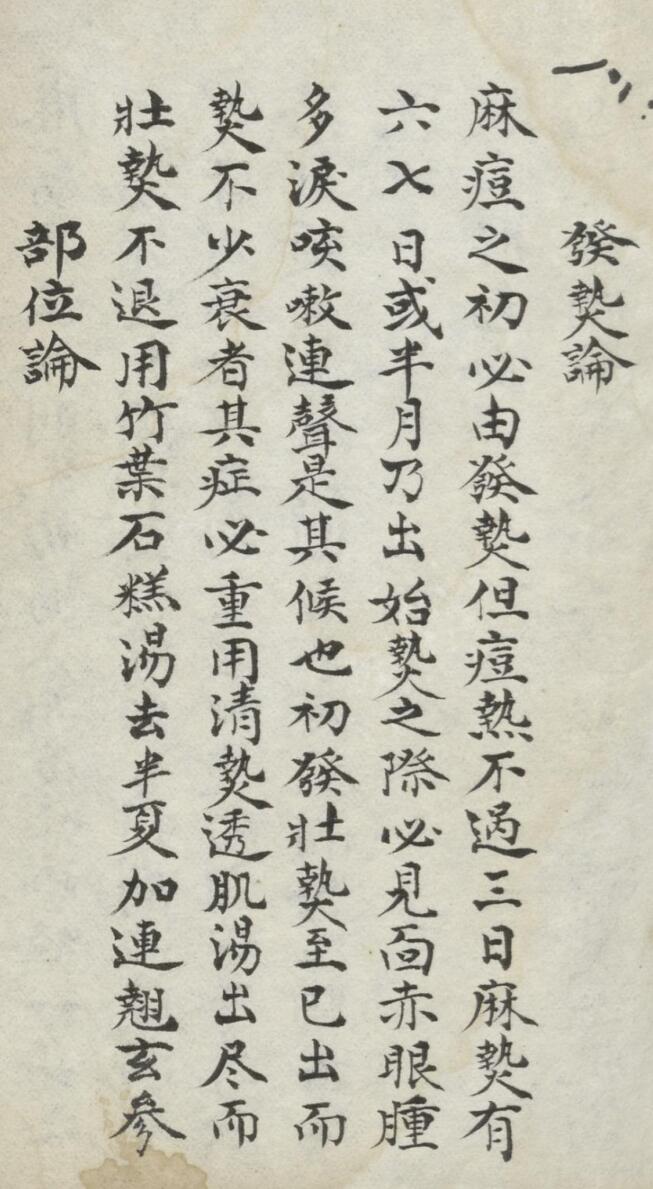 發𤍠論
麻痘之初必由發𤍠但痘熱不過三日麻𤍠有
六七日或半月乃出始𤍠之際必見面赤眼腫
多淚咳嗽連聲是其候也初發壯𤍠至已出而
𤍠不少衰者其症必重用清𤍠透肌湯出尽而
壯𤍠不退用竹葉石糕湯去半夏加連翹玄參
部位論